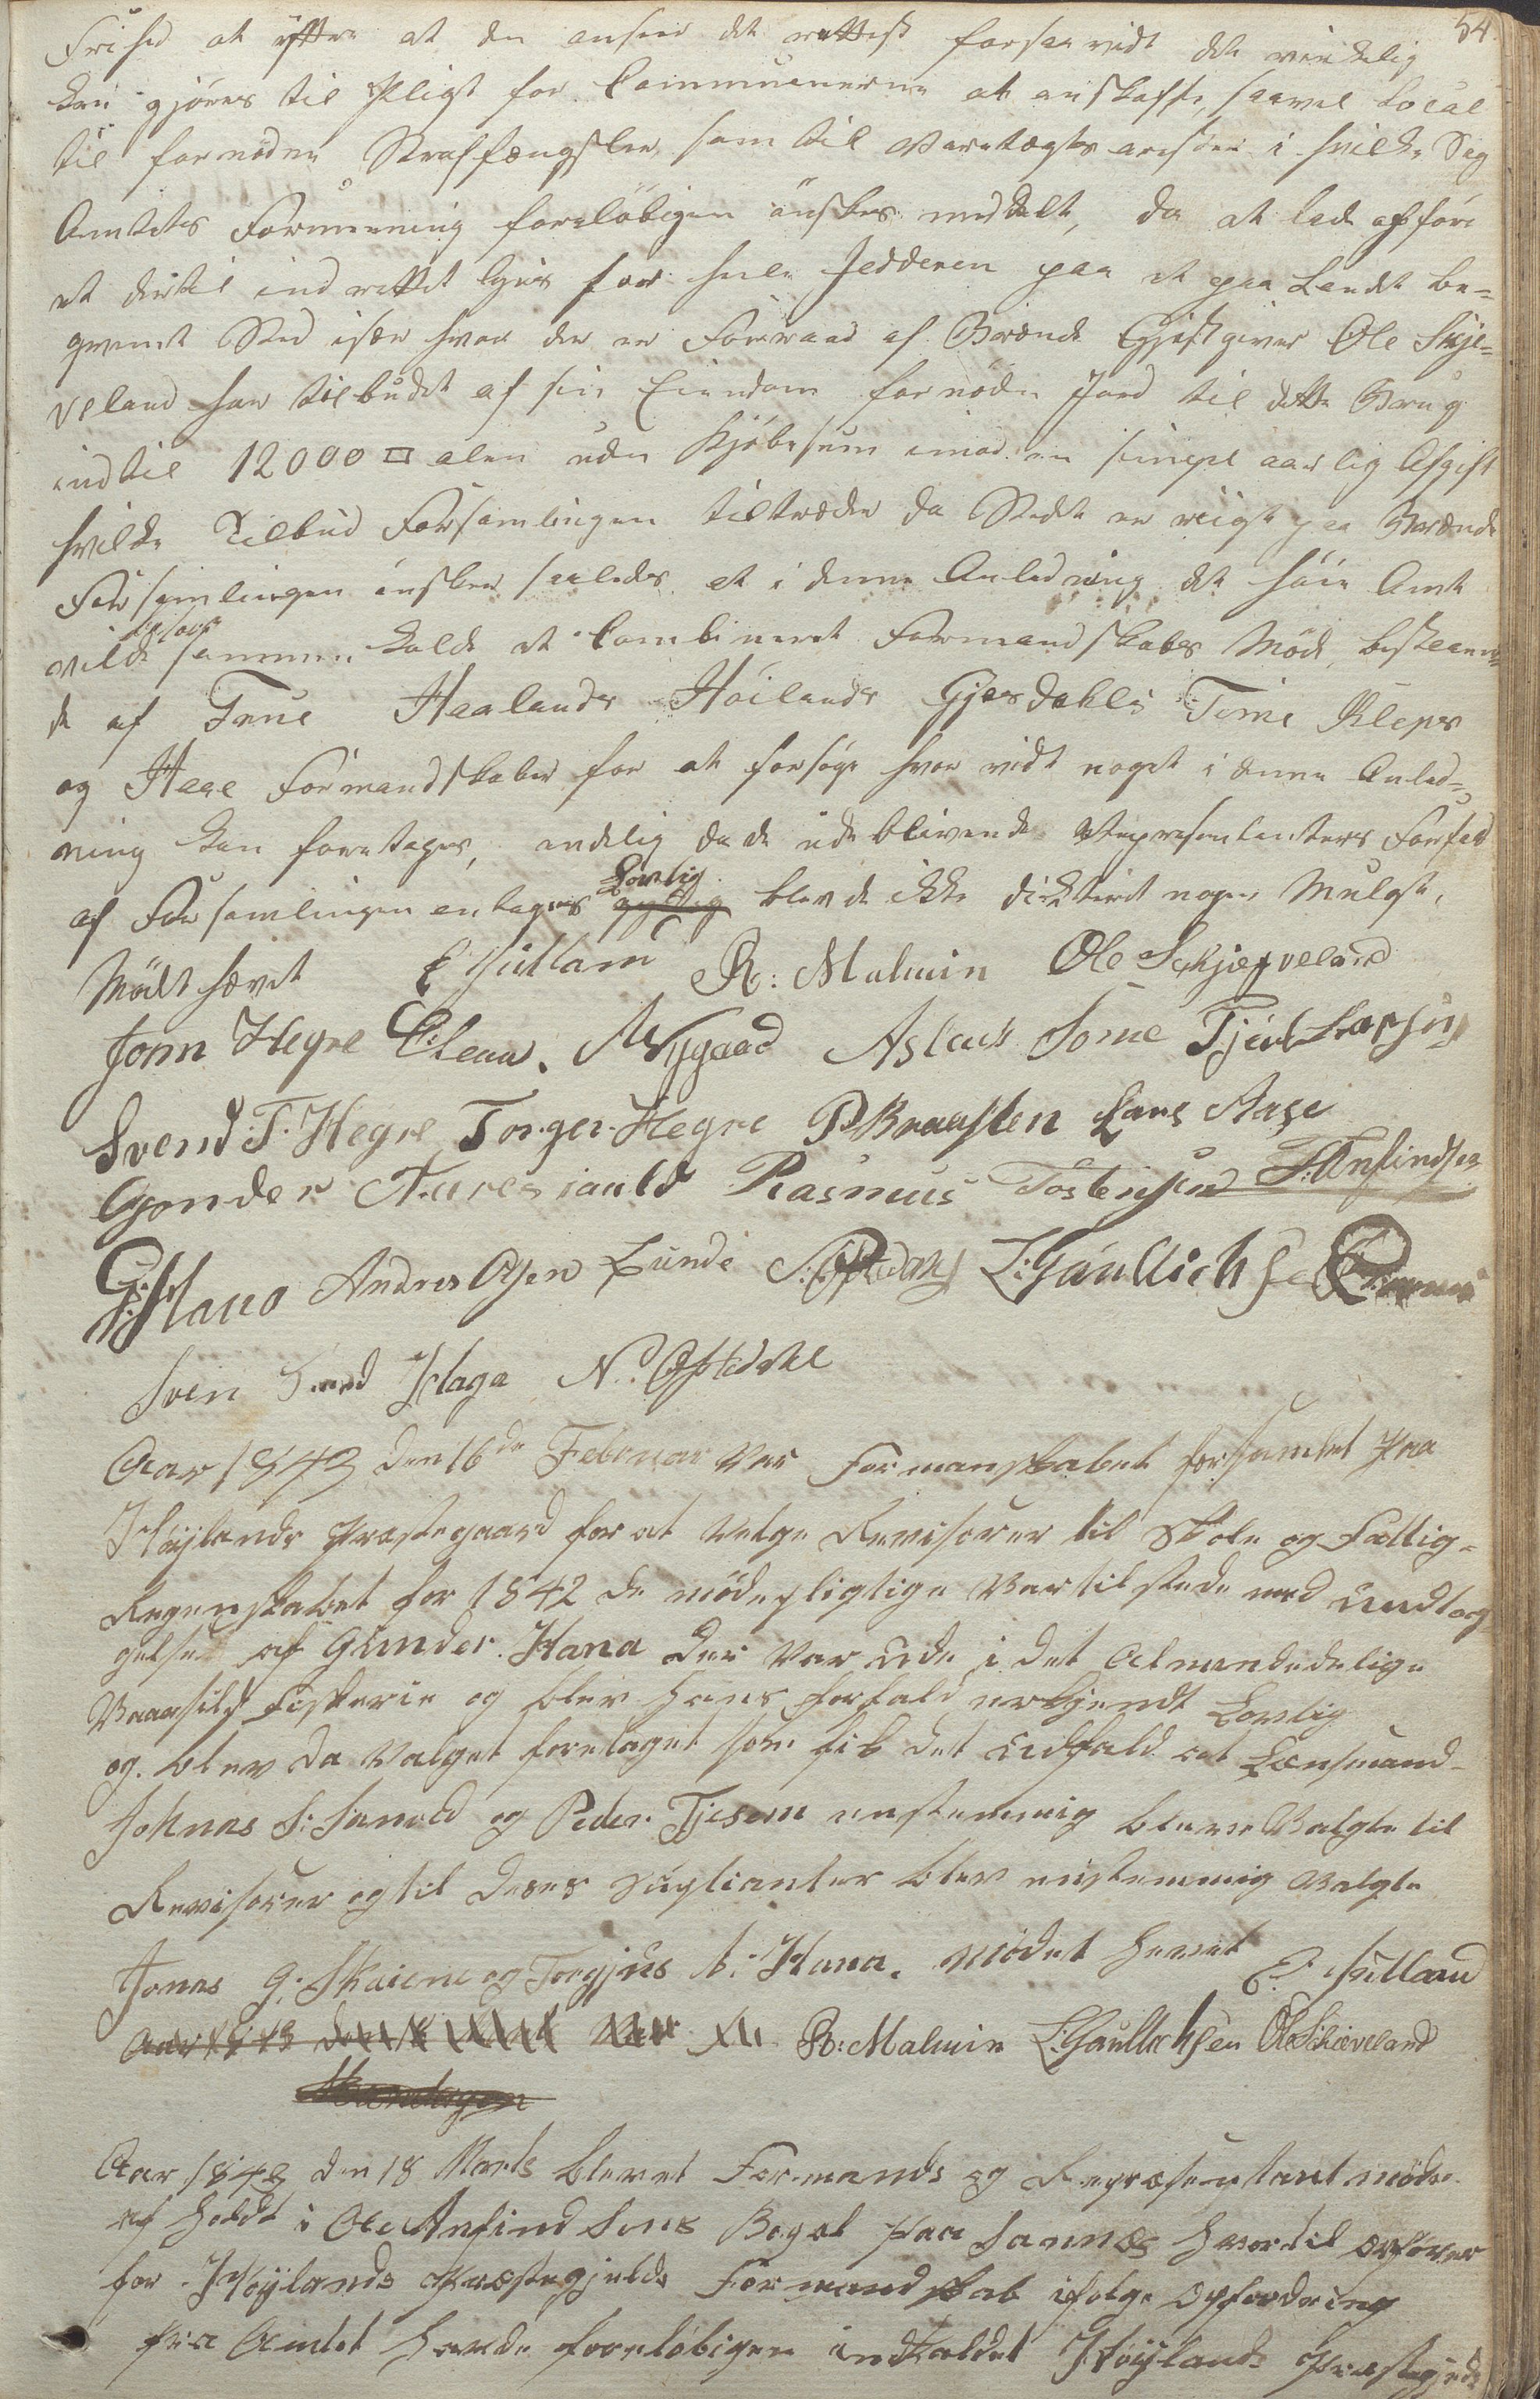 54
Frihed at ÿttre at den anseer det rettest forsaavidt det virkelig
kan gjöres til Pligt for Communerne at anskaffe, saavel Local
til fornöden Straffængsler som til Varetægts arester i hvilke Sag
Amtets Formening foreløbigen önskes meddelt, da at lade opföre
et dertil indrettet Huus for hele Jedderen paa et paa Landet be-
qvemt Sted især hvor der er Forraad af Brænde Gjestgiver Ole Skje-
veland har tilbudet af sin Eiendom fornöden Jord til dette Brug
indtil 12000 □ alen uden Kjöbesum imod en simpel aarlig Afgift
hvilke Tilbud Forsamlingen tiltræder da Stedet er riigt paa Brænde
Forsamlingen önsker saaledes at i denne Anledning det höie Amt
vilde sammenkalde et Combineret Formandskabs Möde, bestaaen-
de af Tuue Haalands Höilands Gjesdahls Time Kleps
og Haae Formandskaber for at forsöge hvor vidt noget i denne Anled-
ning kan foretages, endelig da de udeblivende Representanters Forfald
af Forsamlingen antages Lovlig blev de ikke dikteret nogen Mulgt.
Mödet hævet E Hütland R: Malmin Ole Schjæfveland
Jonn Hegre C: Lena. Nygaard Aslack Some Tjerl Larsen
Svend T. Hegre Torger Hegre P Braasten Lars Aase
Gonder Rasmus Tostensen T. Anfindsen
G: Hano Andres Olsen Lunde L: Gaüllichsen
Sven Haga N. Oftedahl
Aar 1843 den 16de Februar Var Formanskabet forsamlet paa
Höÿlands Præstegaard for at Velge Revisorer til Skole og Fattig-
Regenskabet for 1842 de mödepligtige Var tilstede med Undtag-
gelse af Gunder Hana der Var ude i det Almendedelige
Vaarsild fiskerie og blev hans forfald erkjendt Lovlig
og blev da Valget foretaget som fik det Udfald at Lensmand
Johnas S: Sanved og Peder Tjesem enstemmig bleve Valgte til
Revisorer og til deres Suplianter blev enstemmig Valgte
Jonas G: Skaiene og Torgjus A: Hana. Mödet hevet E. Hütland
R: Malmin L: Gaüllichsen Ole Schieveland
Aar 1843 den 18 Marts blevet Formands og Representant möde
af holdt i Ole Anfindsens Bopæl paa Sannes hvortil ordförer
for Höÿlands Præstegjelds Formandskab ifølge Opfordring
fra Amtet havde forelöbigen indkaldet Höÿlands Præstegjelds